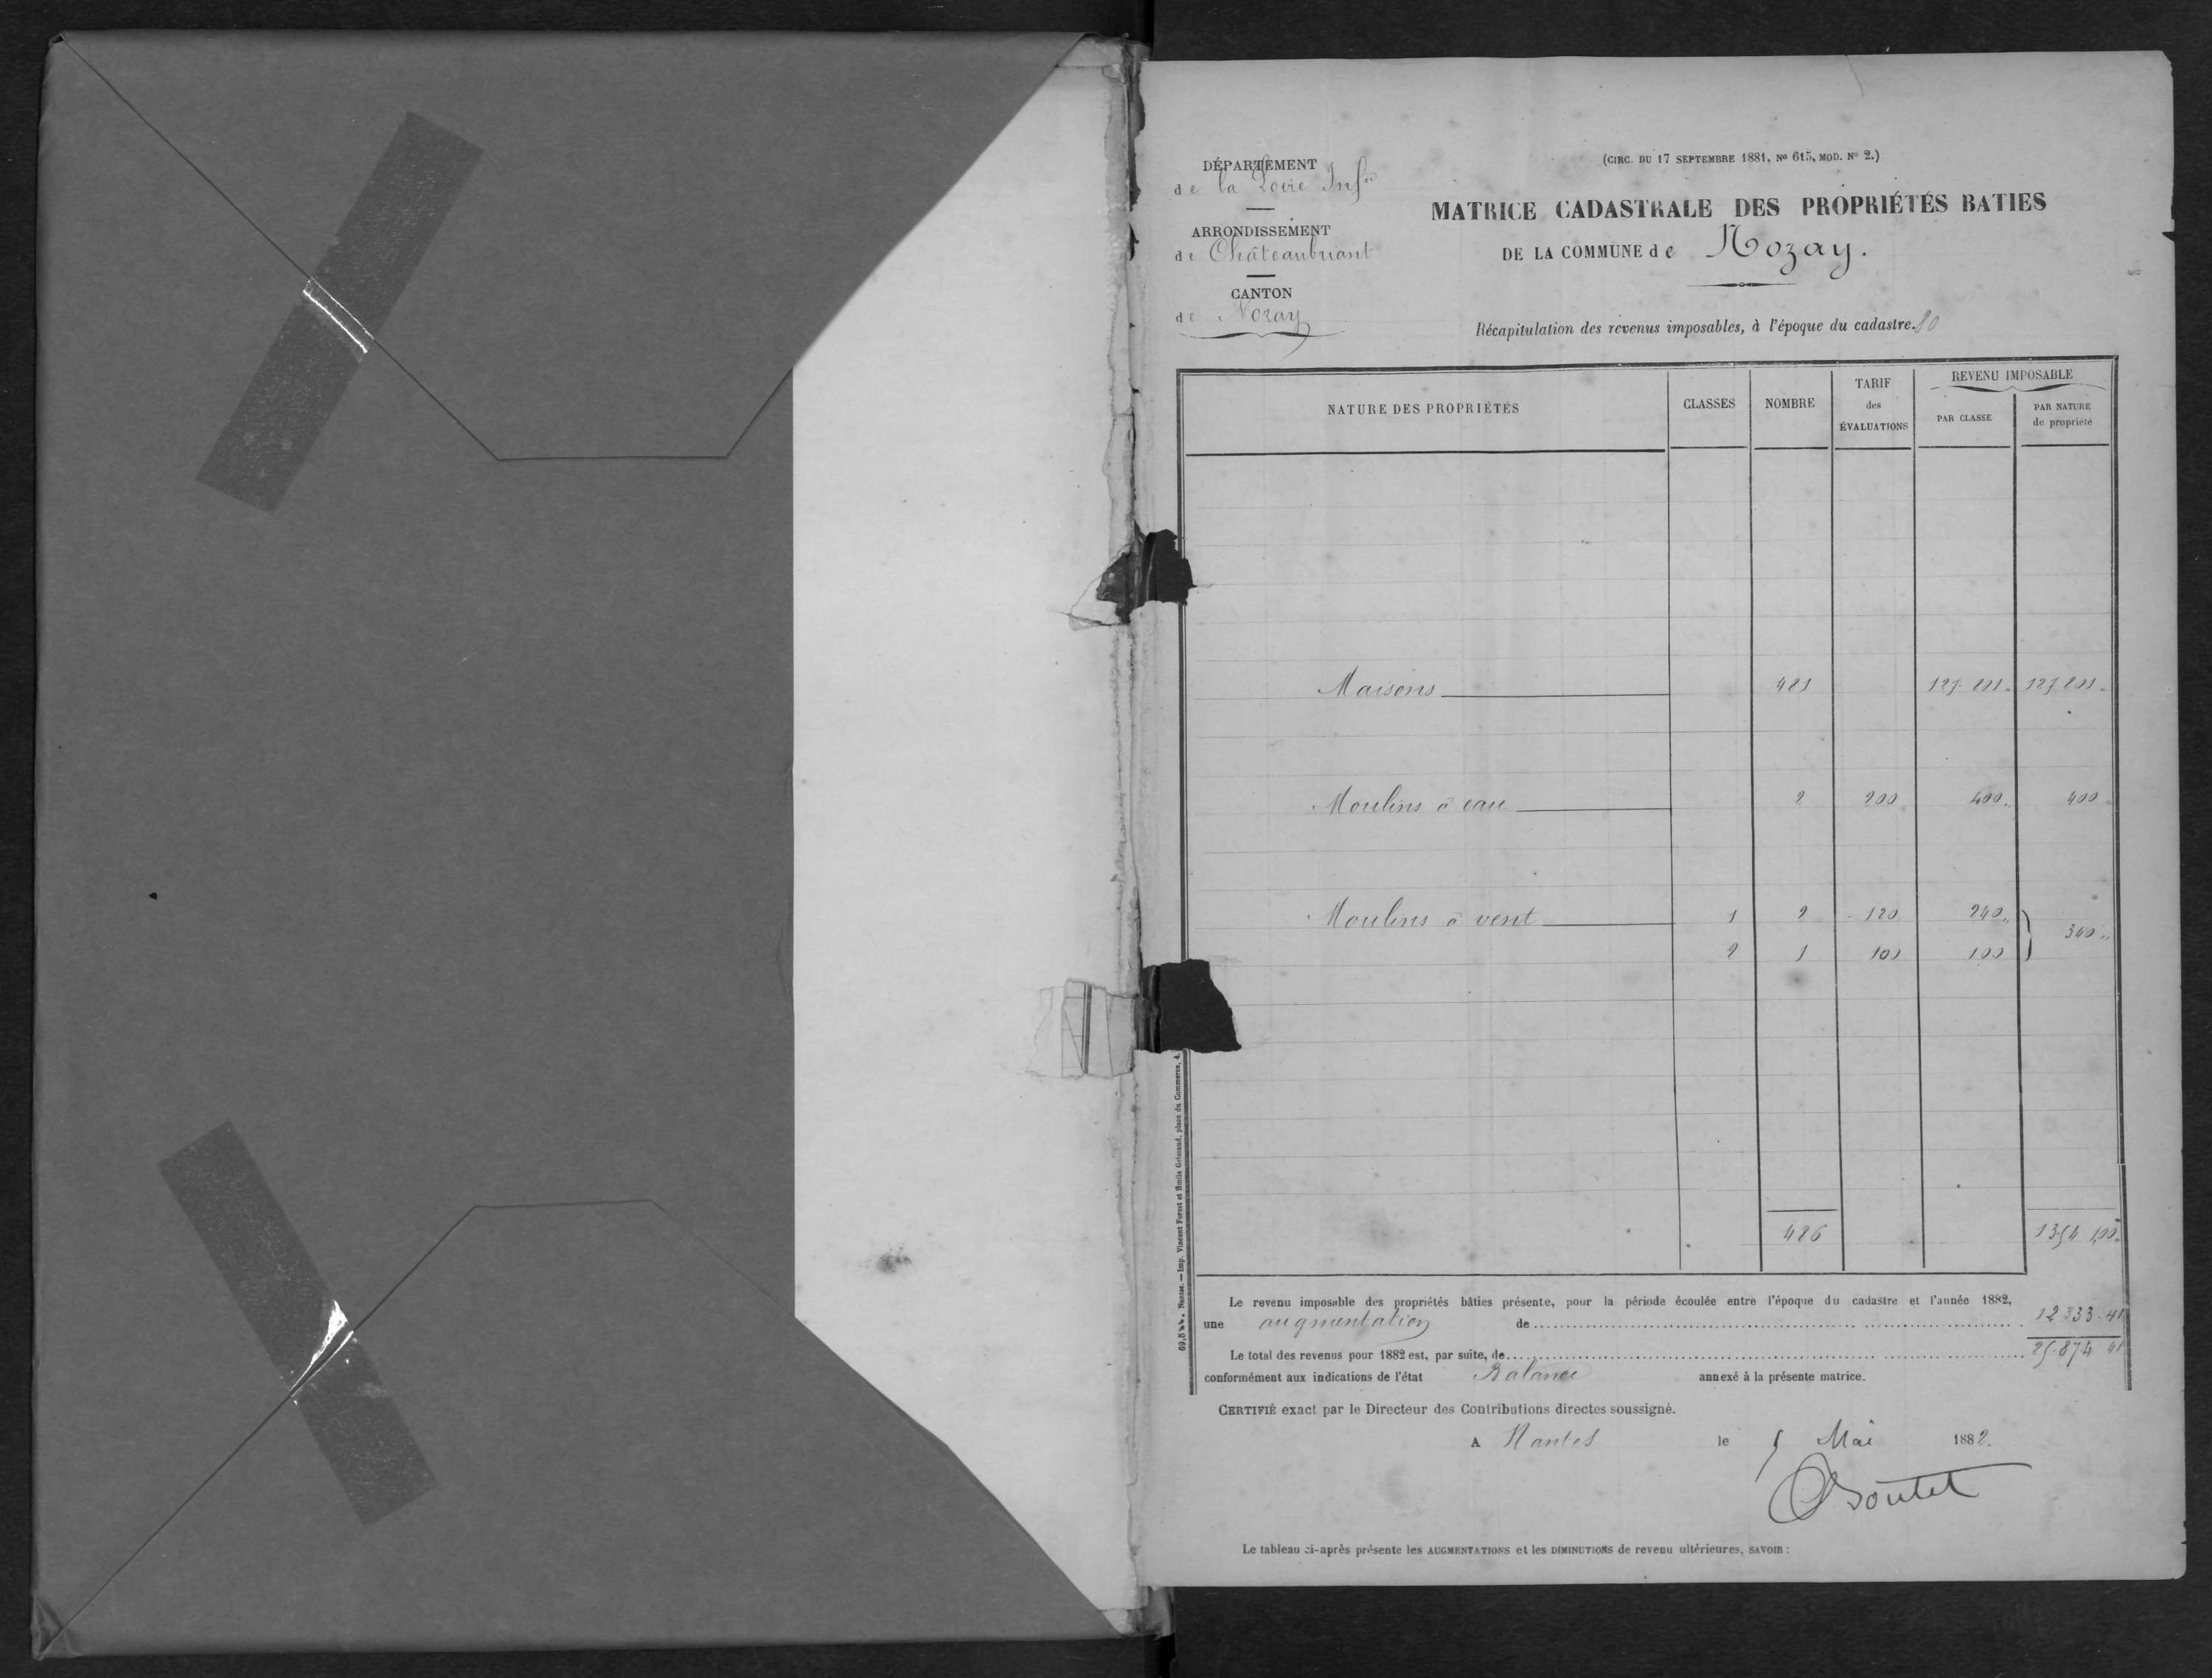 DÉPARTEMENT
de la Loire Infre
ARRONDISSEMENT
de Châteaubriant
CANTON
de Nozay
(CIRC. DU 17 SEPTEMBRE 1881, No 615, MOD. No 2.)
MATRICE CADASTRALE DES PROPRIÉTÉS BATIES
DE LA COMMUNE de Nozay.
Récapitulation des revenus imposables, à l'époque du cadastre.
NATURE DES PROPRIÉTÉS CLASSES NOMBRE TARIF des ÉVALUATIONS REVENU IMPOSABLE
PAR CLASSE PAR NATURE de propriété
Maisons 481
Moulins à eau 2 200 400 400
Moulins à vent 1 2 120 240 340
2 1 100 100
486
Le revenu imposable des propriétés bâties présente, pour la période écoulée entre l'époque du cadastre et l'année 1882,
une augmentation de 12 333. 41
Le total des revenus pour 1882 est, par suite, de 25.874 41
conformément aux indications de l'état Balance annexé à la présente matrice.
CERTIFIÉ exact par le Directeur des Contributions directes soussigné.
A Nantes le 5 Mai 1882.
Boutet
Le tableau ci-après présente les AUGMENTATIONS et les DIMINUTIONS de revenu ultérieures, SAVOIR :
Nantes. — Imp. Vincent Forest et Emile Grimaud, place du Commerce, 4.